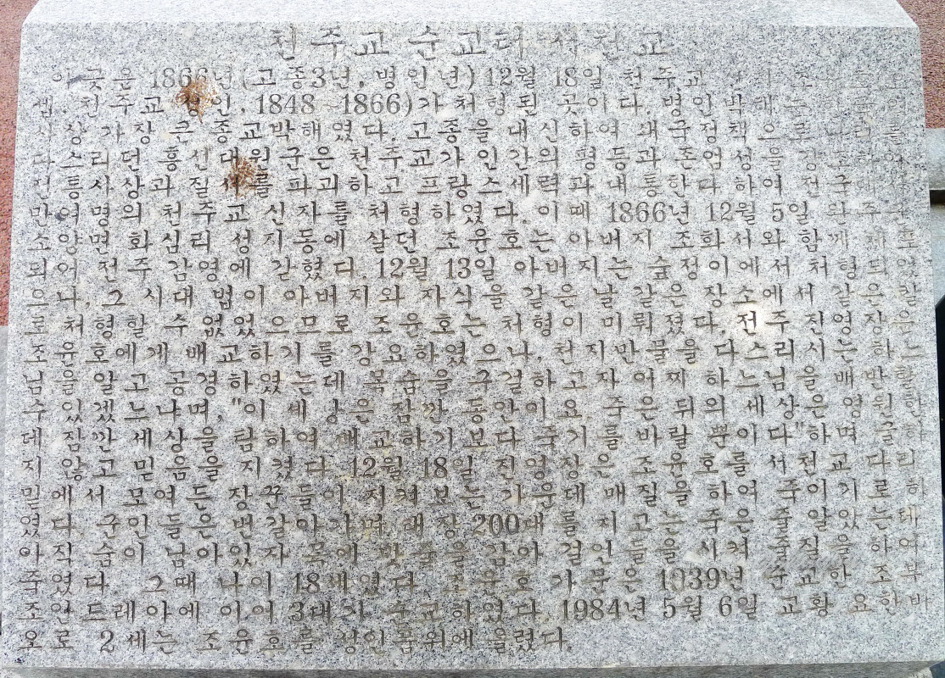 천주교 순교터 서천교
이 곳은 1866년(고종3년, 병인년) 12월 18일 천주교 조
셉. 천주교 성인. 1848~1866)가 처형된 곳이다. 병인박해는
사상 가장 큰 종교박해였다. 고종을 대신하여 쇄국정책으로 나라를
다스리던 흥선대원군은 천주교가 인간의 평등과 존엄성을
전통사상과 질서를 파괴하고 프랑스세력과 내통한다 하여 전국에서
만여명의 천주교 신자를 처형하였다. 이때 1866년 12월 5일
소양면 화심리 성지동에 살던 조윤호는 아버지 조화서와 함께 체포
되어 전주감영에 갇혔다. 12월 13일 아버지는 숲정이에서 처형되었
으나, 그 시대 법이 아버지와 자식을 같은 날 같은 장소에서 같은 칼
로 처형할 수 없었으므로 조윤호는 처형이 미뤄졌다. 전주진영장은
조윤호에게 배교하기를 강요하였으나, 천지만물을 다스리시는 하느
님을 알고 공경하였는데 목숨을 구걸하고자 어찌 하느님을 배반할
수 있겠느냐며, "이 세상은 잠깐 동안이요 죽은뒤의 세상은 영원한
데 잠깐 세상을 탐하여 배교하기보다 죽기를 바랄 뿐이다"하며 굴하
지 않고 믿음을 지켰다. 12월 18일 진영장은 조윤호를 서천교 다리
밑에서 모여든 장꾼들이 지켜보는 가운데 매질을 하여 죽이기로 하
였다. 군인들은 번갈아가며 매장 200대를 치고는 죽은 줄 알았는데
아직 숨이 남아있자 목에 밧줄을 감아 걸인들을 시켜 줄질을 하여
죽였다. 그때 나이 18세였다. 조윤호 가문은 1839년 순교한 조부
조안드레아에 이어 3대가 순교하였다. 1984년 5월 6일 교황 요한바
오로 2세는 조윤호를 성인품위에 올렸다.